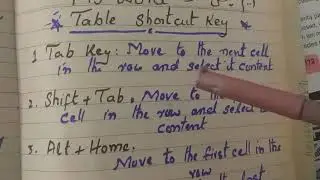 Table Shortcut Key
1 Tab Key: Move to the next cell
in the row and select it content
2. Shift + Tab. Move to the
cell in the row and select
content
3. Alt + Home.
Move to the first cell in the
row